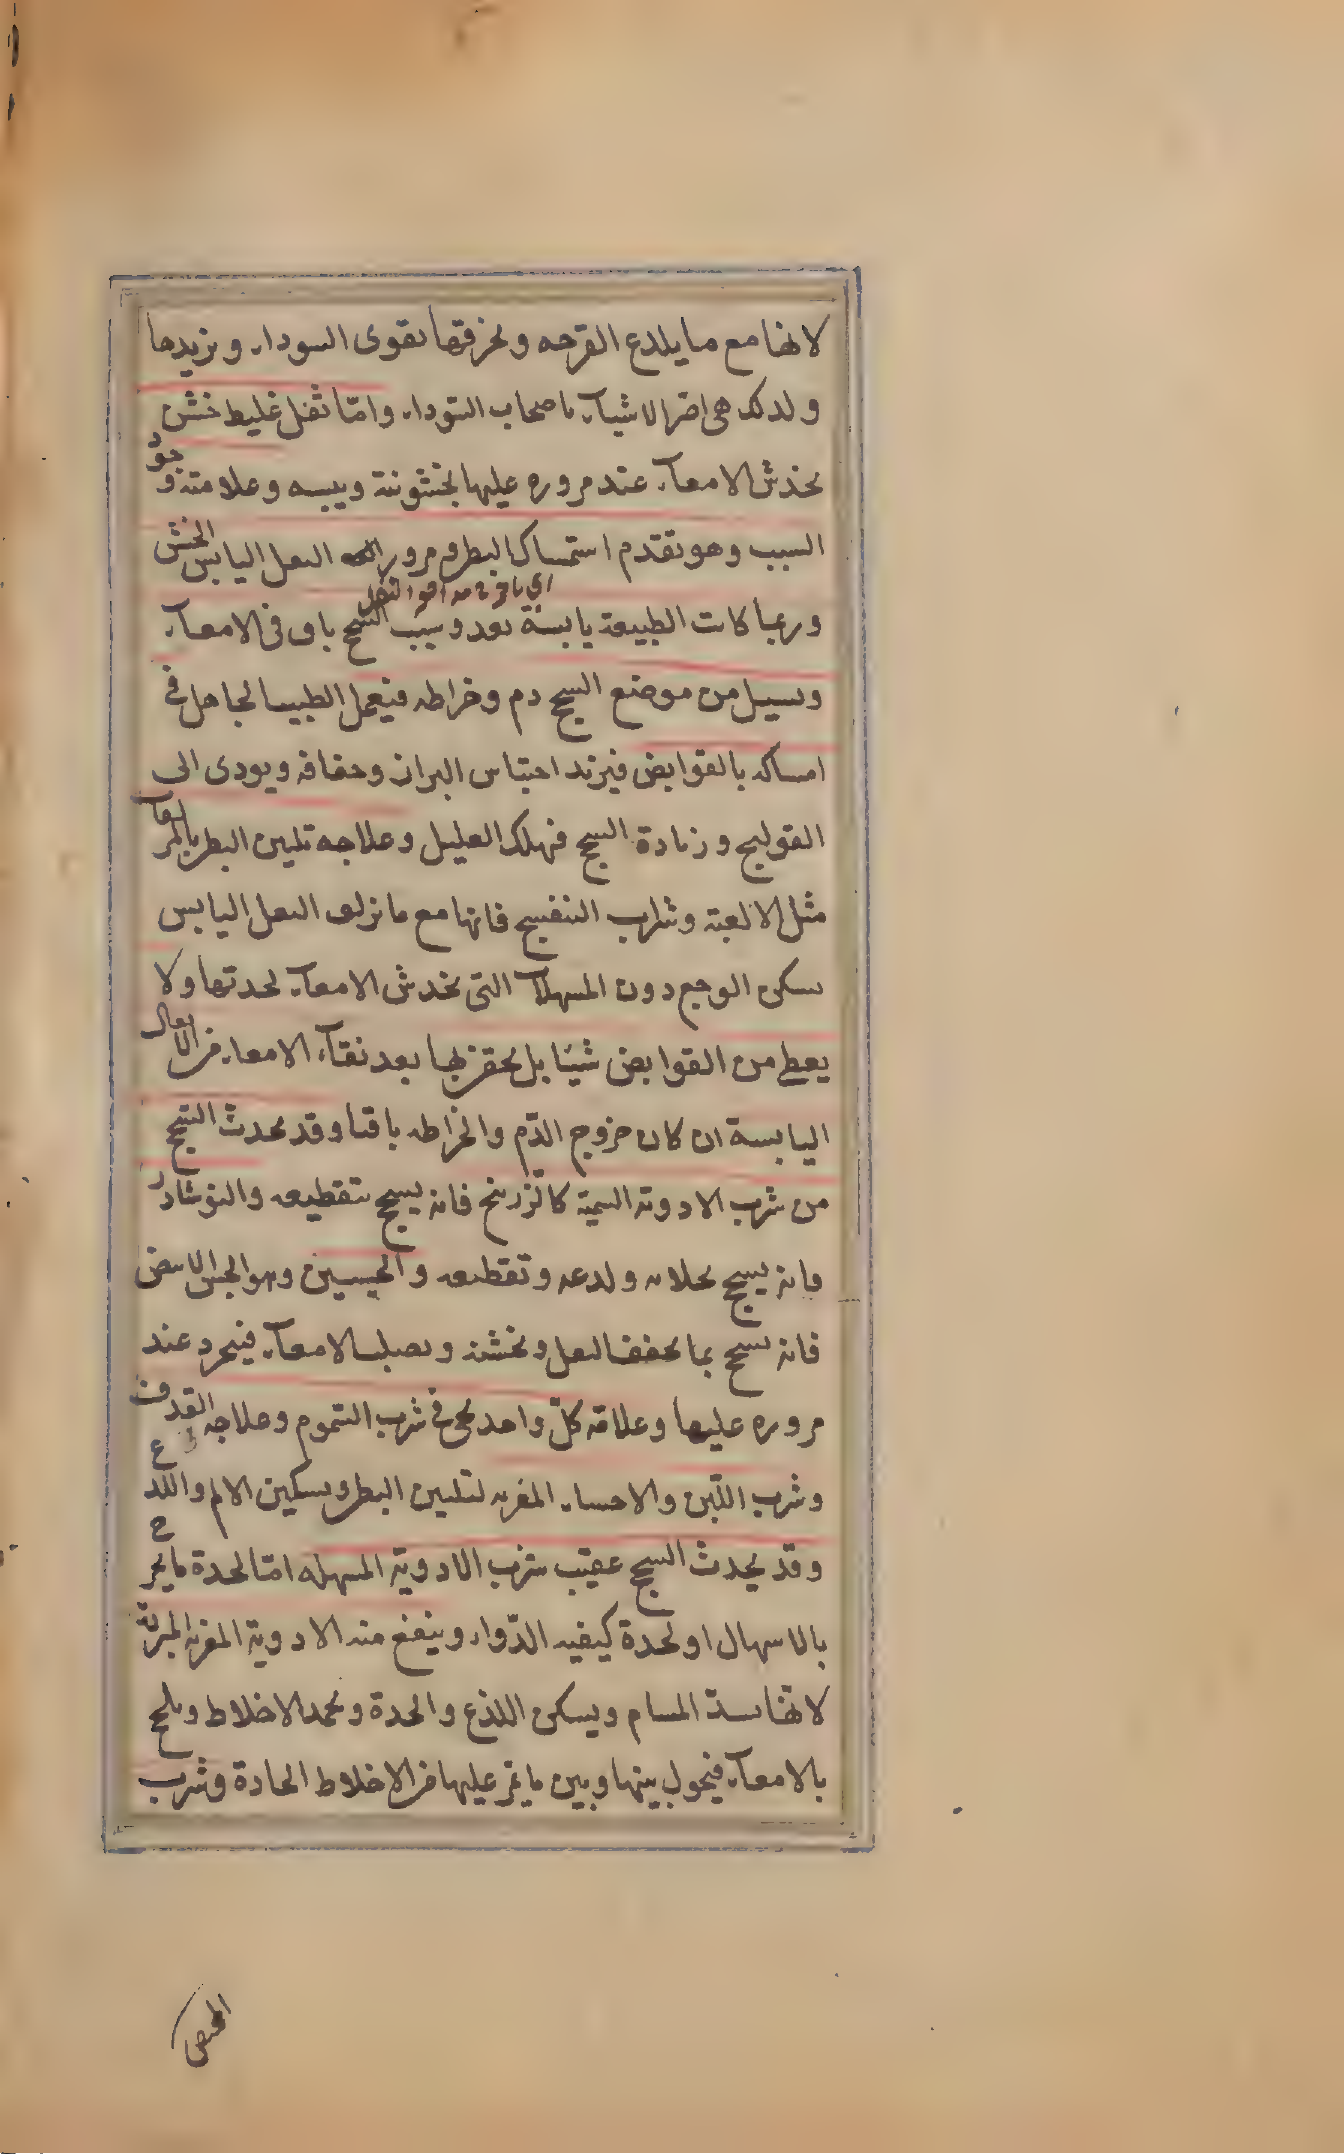 لانها مع ما يلدع القرحه ويخرقها يقوى السوداء ويزيدها
ولدلك هى اضر الاشياء باصحاب السّوداء وامّا ثفل غليط خشن
يخدش الامعاء عند مروره عليها بخشونته ويبسه وعلامته وجود
السبب وهو تقدم استمساك البطن ومرور الثفل اليابس الخشن
وربما كانت الطبيعة يابسة بعد وسبب السّحج باق فى الامعاء
ويسيل من موضع السحج دم وخراطه فيعمل الطبيب الجاهل فى
امساكه بالقوابض فيزيد احتباس البراز وجفافه ويودى الى
القولنج وزيادة السحج فيهلك العليل وعلاجه تليين البطن بالمزلقات
مثل الالعبة وشراب البنفسج فانها مع ما يزلق الثفل اليابس
يسكن الوجع دون المسهلات التى يخدش الامعاء لحدتها ولا
يعطى من القوابض شيئا بل يحقن بها بعد نقاء الامعاء من الاثفال
اليابسة ان كان خروج الدّم والخراطه باقيا وقد يحدث السّحج
من شرب الادوية السمية كالزرنيخ فانه يسحج بتقطيعه والنوشادر
فانه يسحج بجلائه ولدعه وتقطيعه والجبسين وهو الجص الابيض
فانه يسحج بما يجفف الثفل ويخشنه ويصلب الامعاء فينجرد عند
مروره عليها وعلامة كلّ واحد يجى فى شرب السّموم وعلاجه القذف
وشرب اللّبن والاحساء المغرية لتليين البطن وتسكين الالم واللدع
وقد يحدث السحج عقيب شرب الادوية المسهله امّا لحدة ما يخرج
بالاسهال او لحدة كيفيه الدّواء وينفع منه الادوية المغرية المبردة
لانها يسدّ المسام ويسكن اللذع والحدة ويجمد الاخلاط ويلحج
بالامعاء فيحول بينها وبين ما يمرّ عليها من الاخلاط الحادة وشرب